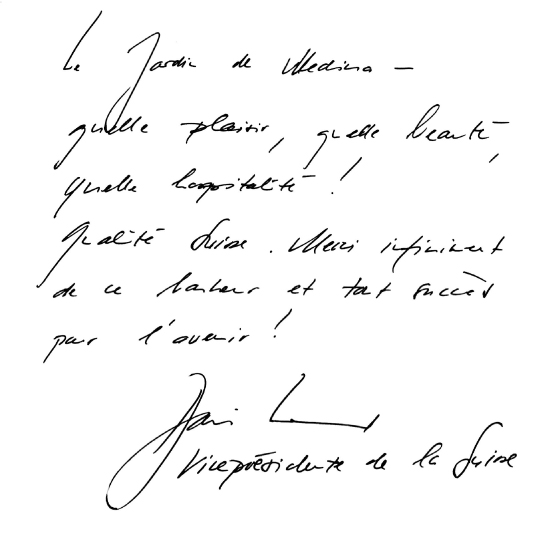 Le Jardin de Medina –
quelle plaisir, quelle beauté,
quelle hospitalité !
Qualité Suisse. Merci infiniment
de ce bonheur et tout succès
pour l'avenir !
Viceprésidente de la Suisse